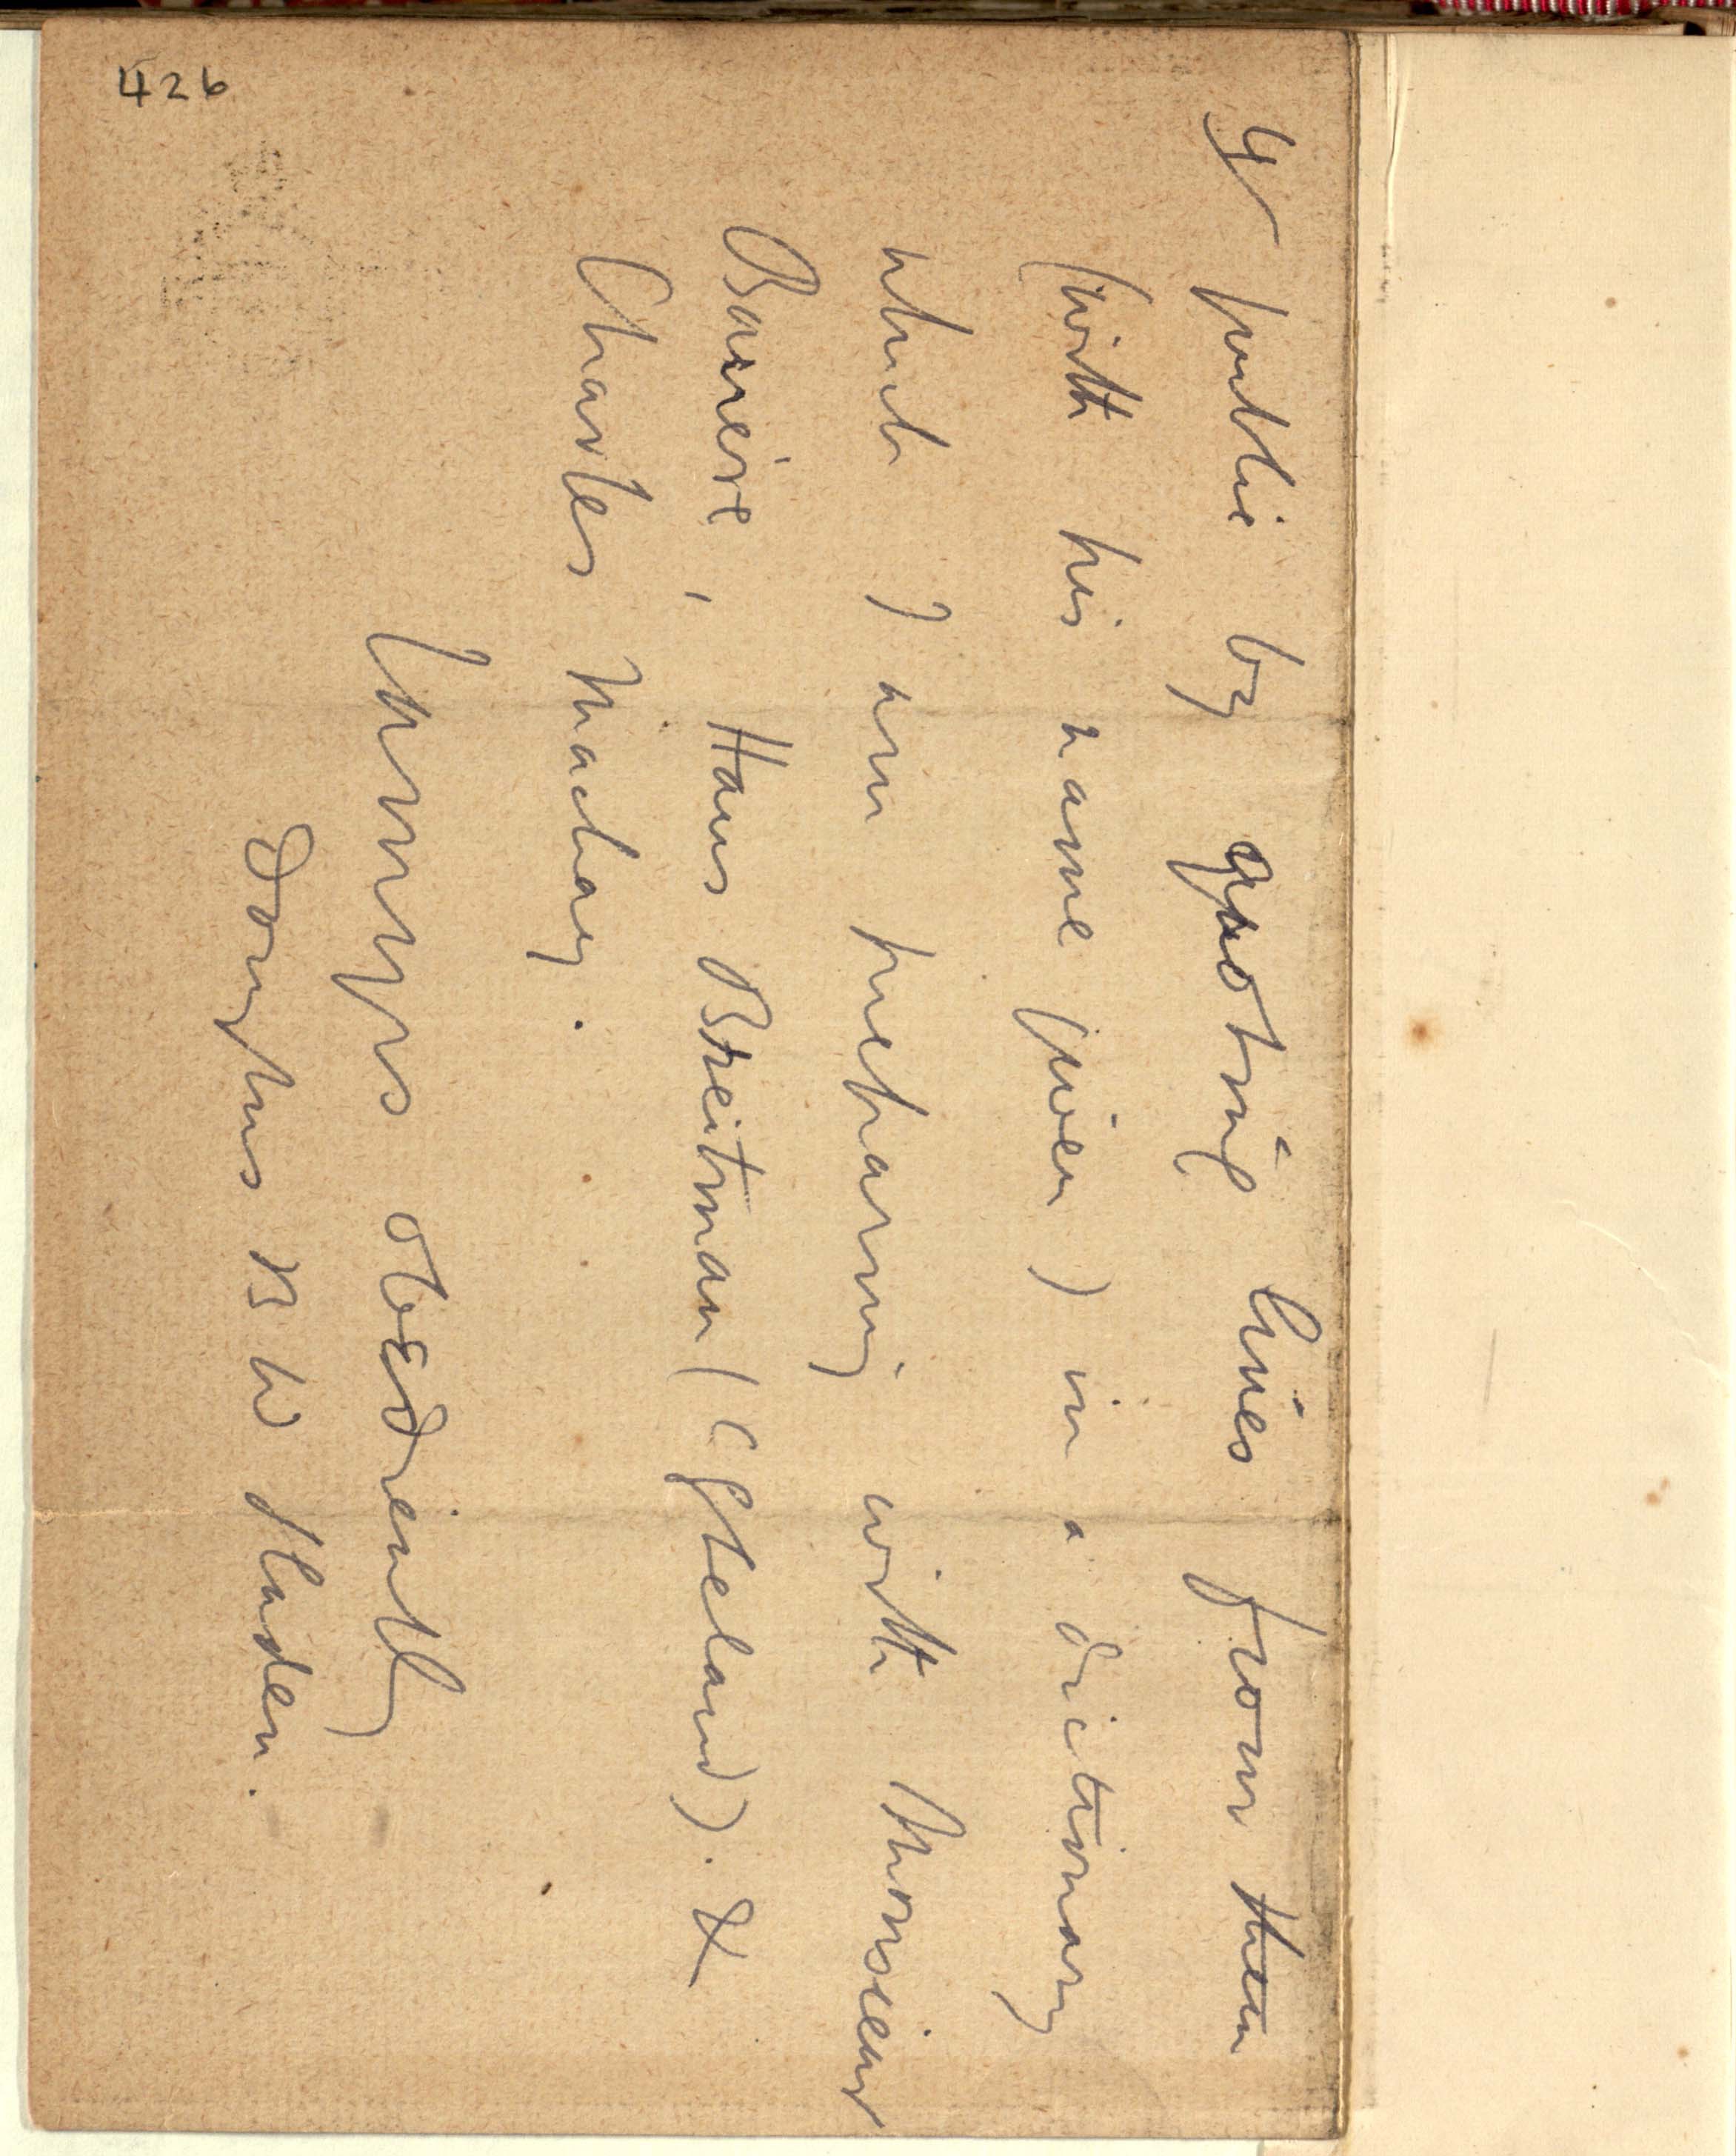 yr public by quoting lines from them
(with his name given) in a dictionary
which I am preparing with Monsieur
Barrère, Hans Breitman (Cgteland). &
Charles Mackay.
Yours obediently
Douglas B W Sladen.
426